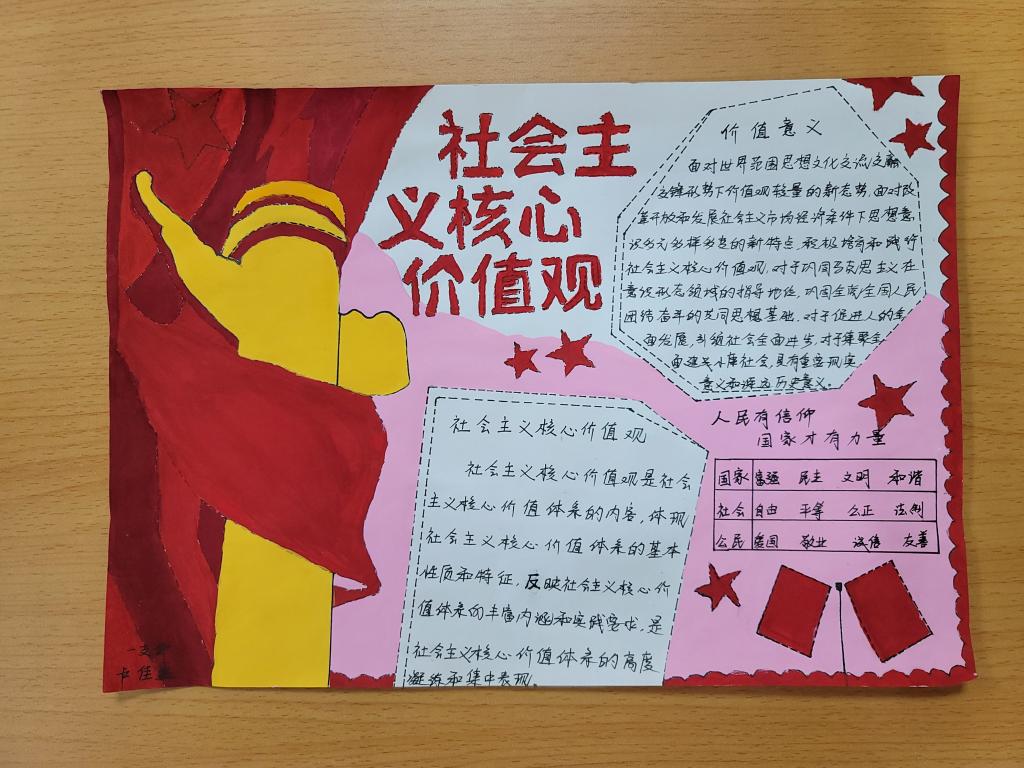 社会主
义核心
价值观
价值意义
面对世界范围思想文化交流交融
交锋形势下价值观较量的新态势,面对改
革开放和发展社会主义市场经济条件下思想意
识多元多样多变的新特点,积极培育和践行
社会主义核心价值观,对于巩固马克思主义在
意识形态领域的指导地位,巩固全党全国人民
团结奋斗的共同思想基础,对于促进人的全
面发展,引领社会全面进步,对于集聚全
面建成小康社会,具有重要现实
意义和深远历史意义。
人民有信仰
国家才有力量
国家 富强 民主 文明 和谐
社会 自由 平等 公正 法制
公民 爱国 敬业 诚信 友善
社会主义核心价值观
社会主义核心价值观是社会
主义核心价值体系的内容,体现
社会主义核心价值体系的基本
性质和特征,反映社会主义核心价
值体系的丰富内涵和实践要求,是
社会主义核心价值体系的高度
凝练和集中表现。
一支部
卡佳